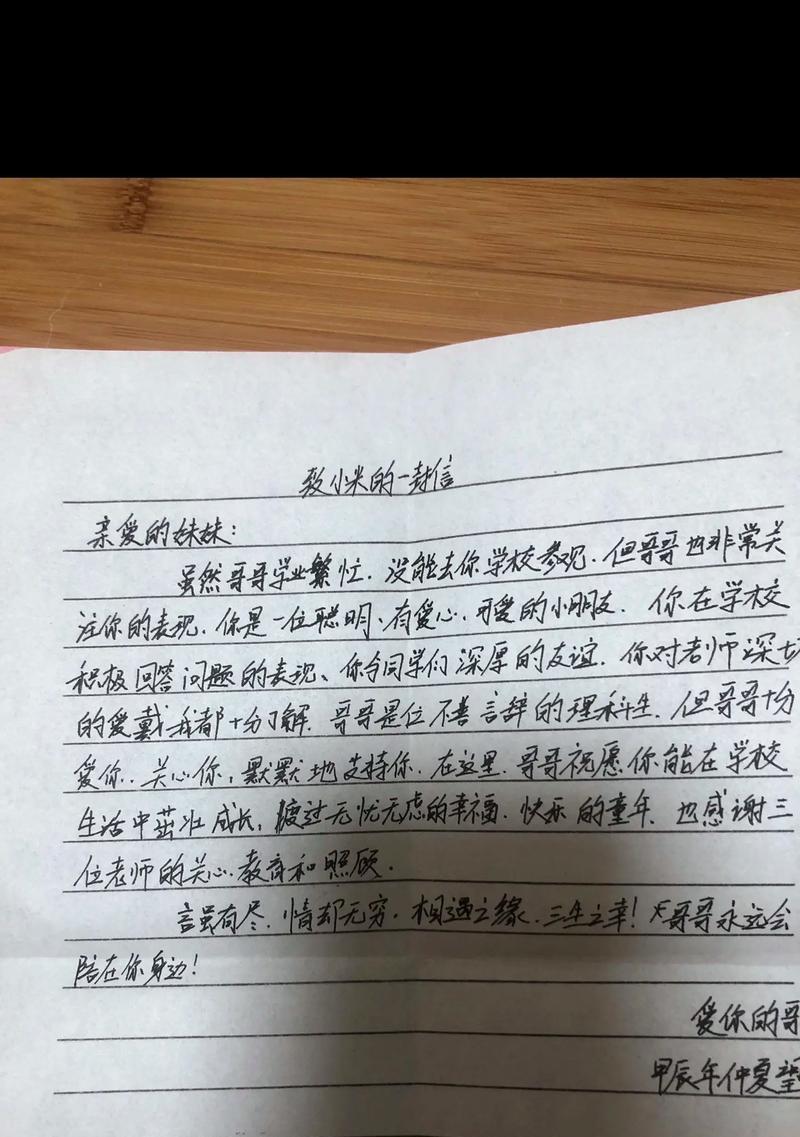 致小米的一封信
亲爱的妹妹：
虽然哥哥学业繁忙，没能去你学校参观，但哥哥也非常关
注你的表现，你是一位聪明、有爱心、可爱的小朋友．你在学校
积极回答问题的表现、你与同学们深厚的友谊．你对老师深切
的爱戴我都十分了解．哥哥是位不善言辞的理科生．但哥哥十分
爱你．关心你，默默地支持你．在这里．哥哥祝愿你能在学校
生活中茁壮成长，度过无忧无虑的幸福．快乐的童年．也感谢三
位老师的关心．教育和照顾．
言虽有尽．情却无穷．相遇之缘．三生之幸！哥哥永远会
陪在你身边！
爱你的哥
甲辰年仲夏